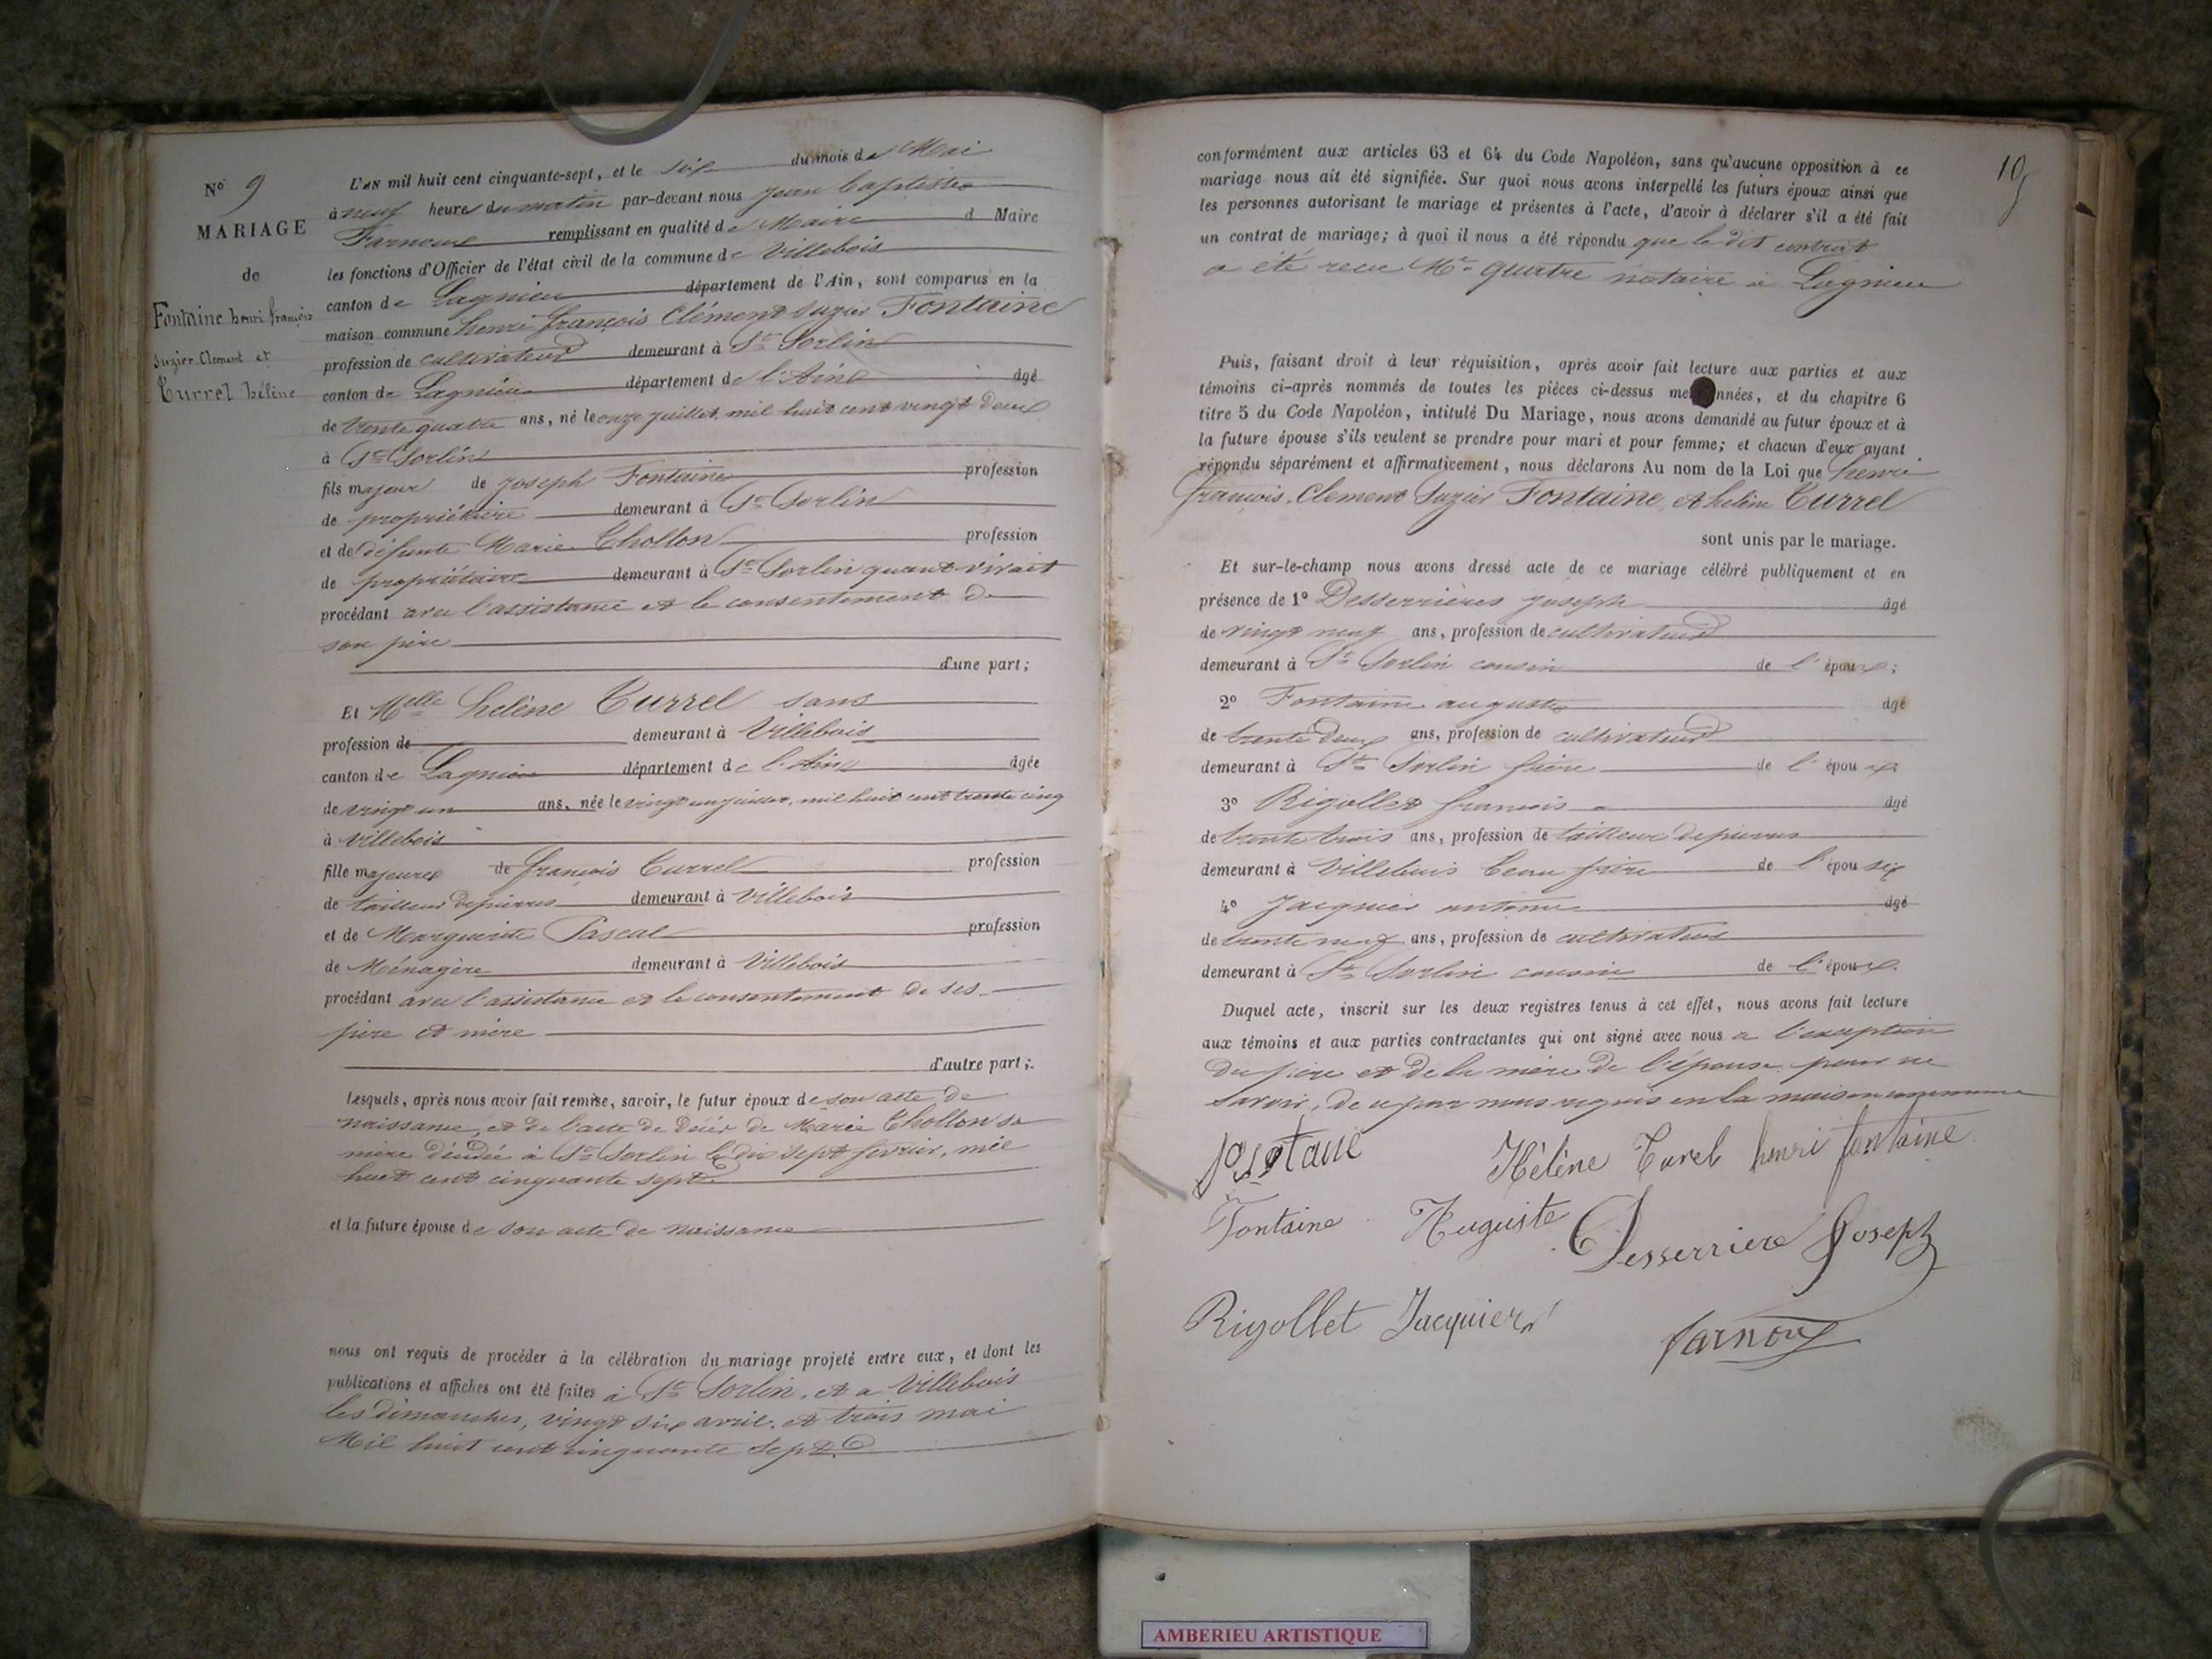 N° 9
MARIAGE
de
Fontaine henri françois
Suzier Clement et
Turrel hélène
L'AN mil huit cent cinquante-sept, et le six du mois de Mai
à neuf heures du matin par-devant nous Jean Baptiste
remplissant en qualité de Maire d Maire
les fonctions d'Officier de l'état civil de la commune de Villebois
canton de Lagnieu département de l'Ain, sont comparus en la
maison commune henri françois Clément Suzier Fontaine
profession de cultivateur demeurant à St Sorlin
canton de Lagnieu département de l'Ain âgé
de trente quatre ans, né le onze juillet, mil huit cent vingt deux
à St Sorlin
fils majeur de Joseph Fontaine profession
de propriétaire demeurant à St Sorlin
et de défunte Marie Chollon profession
de propriétaire demeurant à St Sorlin quant vivait
procédant avec l'assistance et le consentement de
son père
d'une part;
Et Melle hélène Turrel sans
profession de demeurant à Villebois
canton de Lagnieu département de l'Ain âgée
de vingt un ans, née le vingt un juillet, mil huit cent trente cinq
à Villebois
fille majeure de françois Turrel profession
de tailleur de pierres demeurant à Villebois
et de Marguerite Pascal profession
de Ménagère demeurant à Villebois
procédant avec l'assistance et le consentement de ses
père et mère
d'autre part;
Lesquels, après nous avoir fait remise, savoir, le futur époux de son acte de
naissance, et de l'acte de décés de Marie Chollon sa
mère décédée à St Sorlin le dix sept fevrier, mil
huit cent cinquante sept
et la future épouse de son acte de naissance
nous ont requis de procéder à la célébration du mariage projeté entre eux, et dont les
publications et affiches ont été faites à St Sorlin, et a Villebois
les dimanches, vingt six avril, et trois mai
Mil huit cent cinquante sept
10
conformément aux articles 63 et 64 du Code Napoléon, sans qu'aucune opposition à ce
mariage nous ait été signifiée. Sur quoi nous avons interpellé les futurs époux ainsi que
les personnes autorisant le mariage et présentes à l'acte, d'avoir à déclarer s'il a été fait
un contrat de mariage; à quoi il nous a été répondu que le dit contrat
a été recu Me notaire à Lagnieu
Puis, faisant droit à leur réquisition, après avoir fait lecture aux parties et aux
témoins ci-après nommés de toutes les pièces ci-dessus mentionnées, et du chapitre 6
titre 5 du Code Napoléon, intitulé Du Mariage, nous avons demandé au futur époux et à
la future épouse s'ils veulent se prendre pour mari et pour femme; et chacun d'eux ayant
répondu séparément et affirmativement, nous déclarons Au nom de la Loi que henri
françois, Clement Suzier Fontaine, et hélène Turrel
sont unis par le mariage.
Et sur-le-champ nous avons dressé acte de ce mariage célébré publiquement et en
présence de 1° Desserrières Joseph âgé
de vingt neuf ans, profession de cultivateur
demeurant à St Sorlin cousin de l'époux;
2° Fontaine auguste âgé
de trente deux ans, profession de cultivateur
demeurant à St Sorlin frère de l'époux
3° Rigollet françois âgé
de trente trois ans, profession de tailleur de pierres
demeurant à Villebois beau frère de l'épouse
4° Jacquier antoine âgé
de trente neuf ans, profession de cultivateur
demeurant à St Sorlin cousin de l'époux.
Duquel acte, inscrit sur les deux registres tenus à cet effet, nous avons fait lecture
aux témoins et aux parties contractantes qui ont signé avec nous a l'exception
du père et de la mère de l'épouse pour ne
savoir, de ce par nous requis en la maison commune
Hélène Turel henri fontaine
Fontaine Auguste Desserriere Joseph
Rigollet Jacquier
AMBERIEU ARTISTIQUE